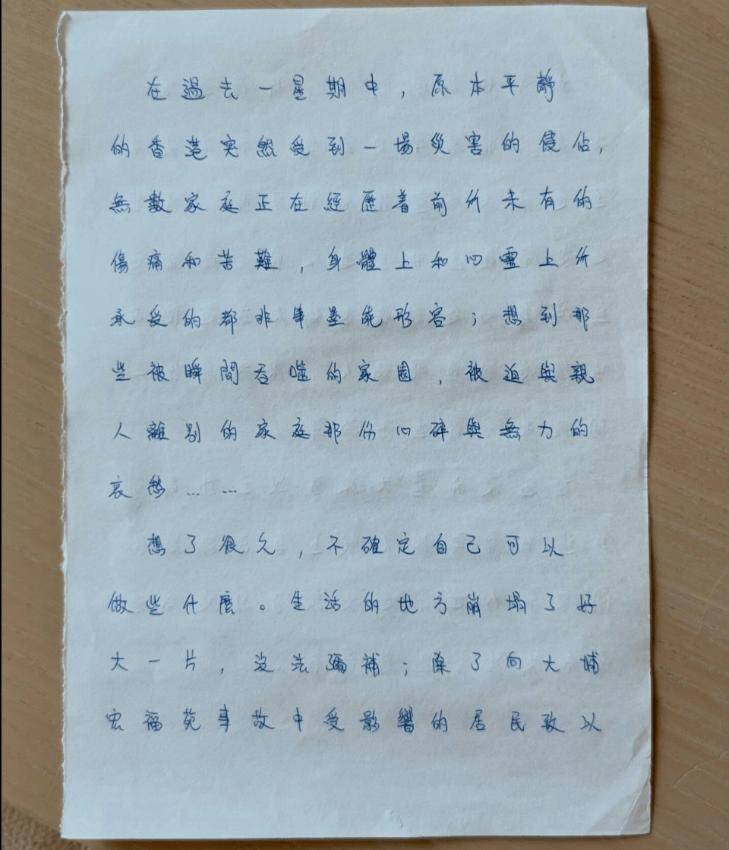 在過去一星期中，原本平靜
的香港突然受到一場災害的侵佔，
無數家庭正在經歷着前所未有的
傷痛和苦難，身體上和心靈上所
承受的都非筆墨能形容；想到那
些被瞬間吞噬的家園，被迫與親
人離別的家庭那份心碎與無力的
哀愁……
想了很久，不確定自己可以
做些什麼。生活的地方崩塌了好
大一片，沒法彌補；除了向大埔
宏福苑事故中受影響的居民致以